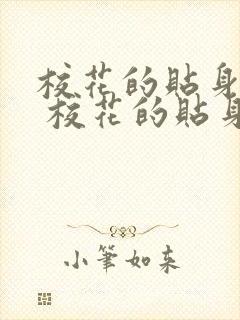 校花的貼身
校花的貼身
小筆如来